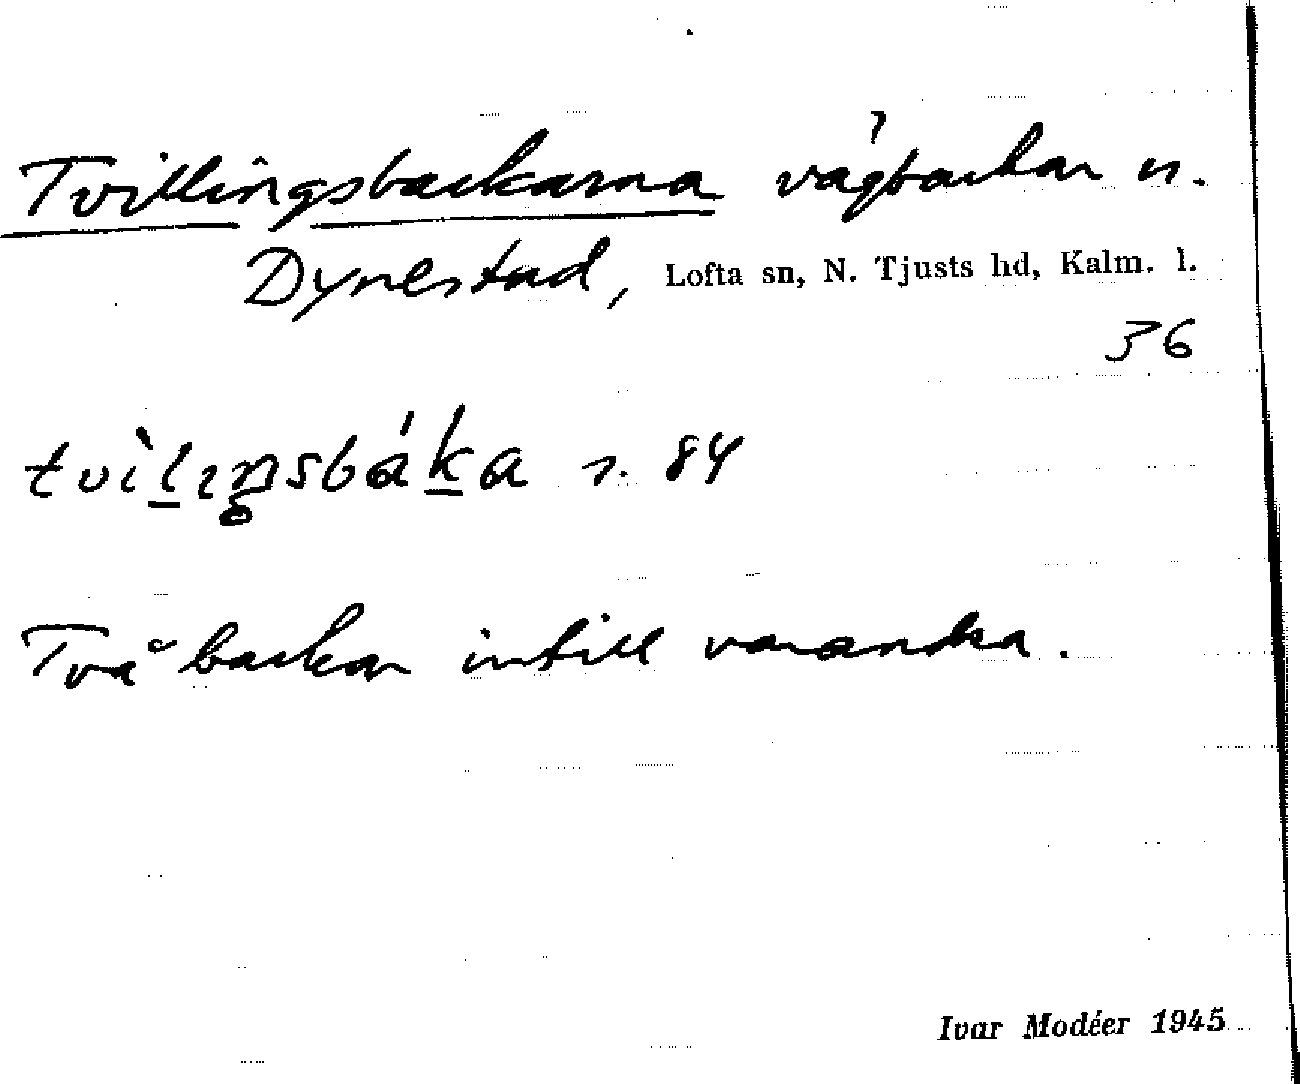 Tvillingsbackarna vägbackar n.
Dynestad, Lofta sn, N. Tjusts hd, Kalm. l.
36
tvìlıŋsbáka s. 84
Två backar intill varandra.
Ivar Modéer 1945